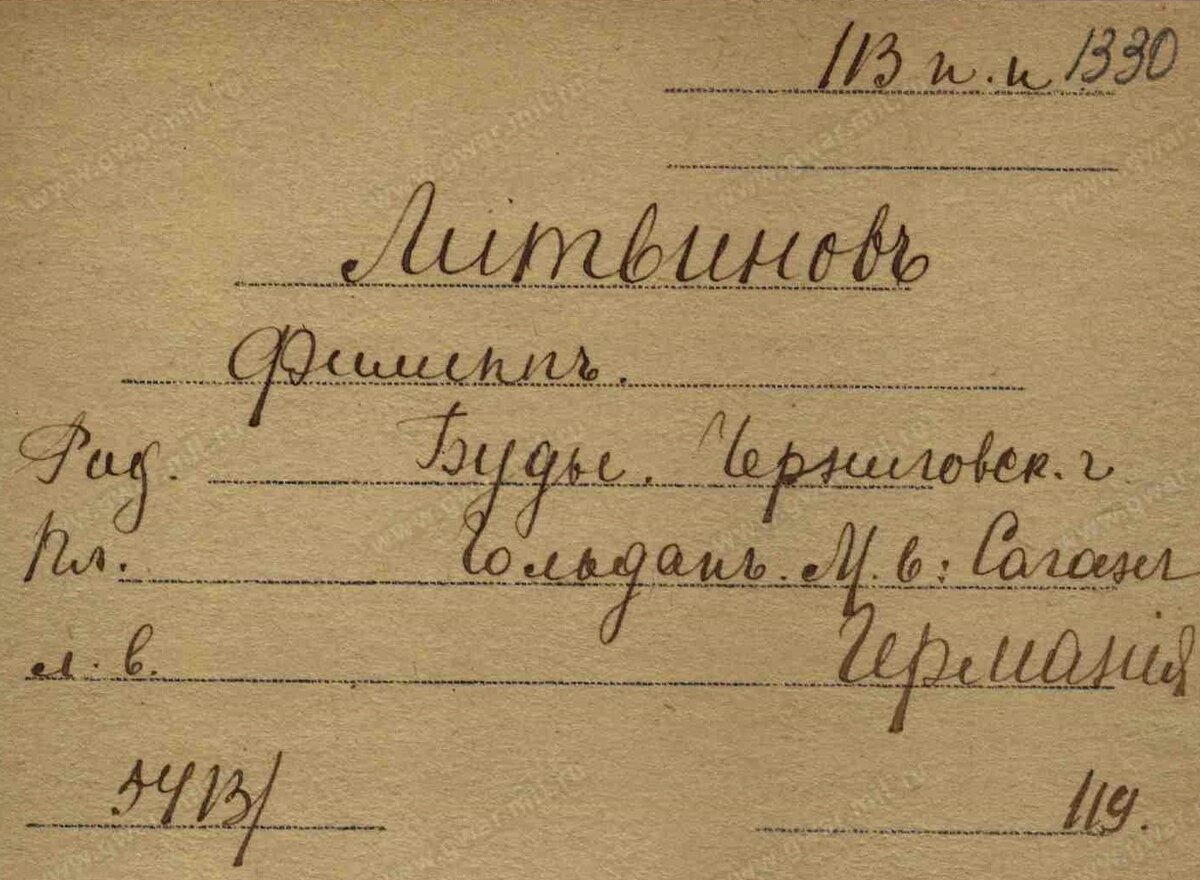 113 п. п 1330
Литвиновъ
Филиппъ.
Род. Буды. Черниговск. г
Пл. Гольдапъ. М. в: Саганъ
л. в. Германія
5413/ 119.